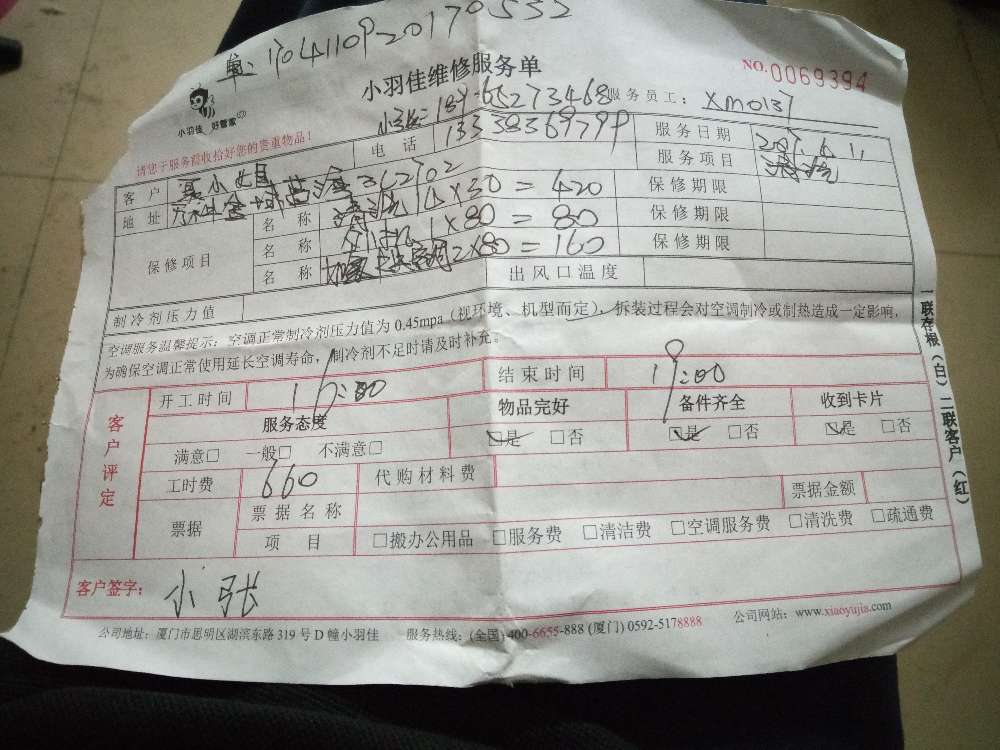 单:1704110P-20170532
小羽佳 好管家
小羽佳维修服务单
NO.0069394
小张:
服务员工: XM0137
请您于服务前收拾好您的贵重物品!
客户 吴小姐 电话 服务日期
地址 服务项目 清洗
保修项目 名称 清洗 14×30=420 保修期限
名称 1×80=80 保修期限
名称 2×80=160 保修期限
制冷剂压力值 出风口温度
空调服务温馨提示:空调正常制冷剂压力值为 0.45mpa(视环境、机型而定),拆装过程会对空调制冷或制热造成一定影响,
为确保空调正常使用延长空调寿命,制冷剂不足时请及时补充。
客户评定
开工时间 16:00 结束时间 19:00
服务态度 物品完好 备件齐全 收到卡片
满意□ 一般□ 不满意□ ☑是 □否 ☑是 □否 ☑是 □否
工时费 660 代购材料费
票据 票据名称 票据金额
项目 □搬办公用品 □服务费 □清洁费 □空调服务费 □清洗费 □疏通费
客户签字: 小张
公司地址:厦门市思明区湖滨东路 319 号 D 幢小羽佳 服务热线:(全国)400-6655-888 (厦门) 0592-5178888 公司网站:www.xiaoyujia.com
一联存根(白)二联客户(红)